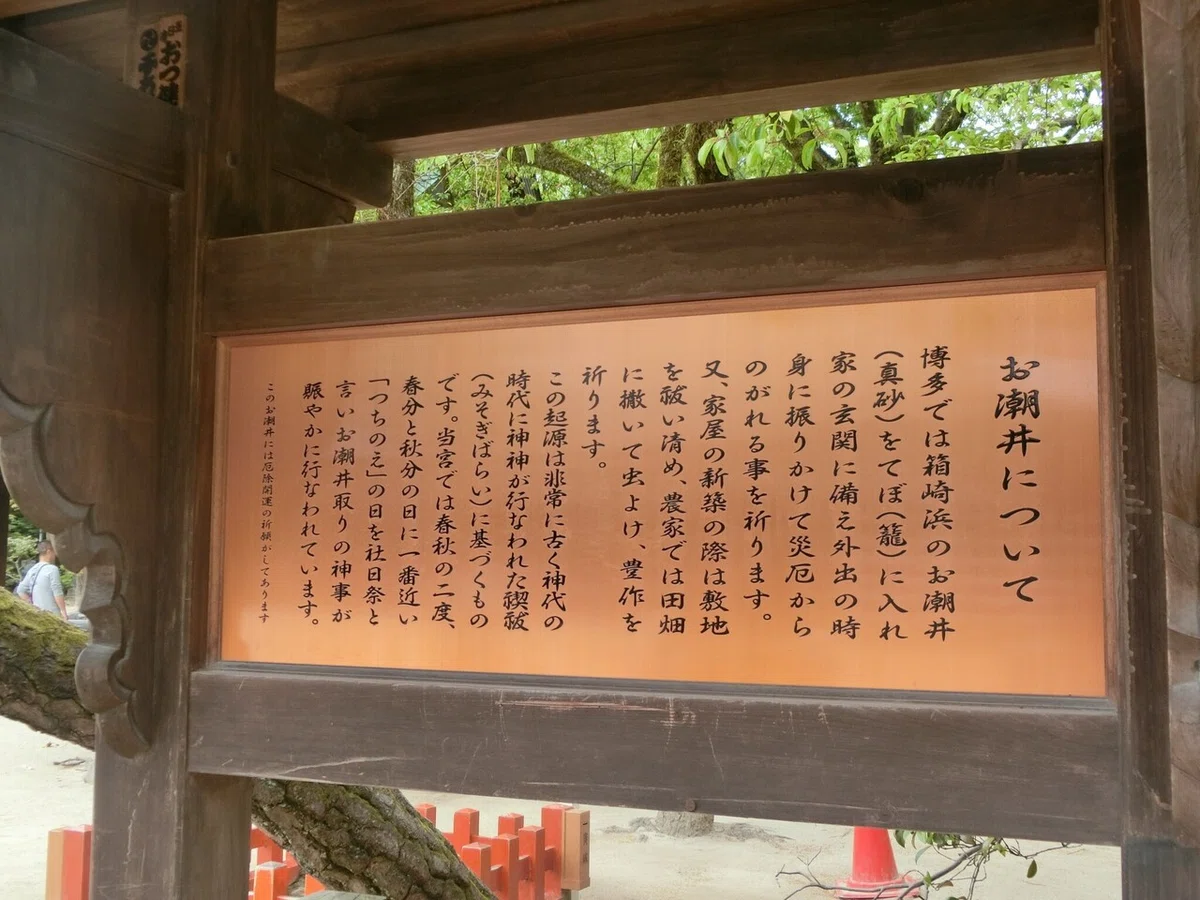 お潮井について
博多では箱崎浜のお潮井
(真砂)をてぼ(籠)に入れ
家の玄関に備え外出の時
身に振りかけて災厄から
のがれる事を祈ります。
又、家屋の新築の際は敷地
を祓い清め、農家では田畑
に撒いて虫よけ、豊作を
祈ります。
この起源は非常に古く神代の
時代に神神が行なわれた禊祓
(みそぎばらい)に基づくもの
です。当宮では春秋の二度、
春分と秋分の日に一番近い
「つちのえ」の日を社日祭と
言いお潮井取りの神事が
賑やかに行なわれています。
このお潮井には厄除開運の祈願がしてあります